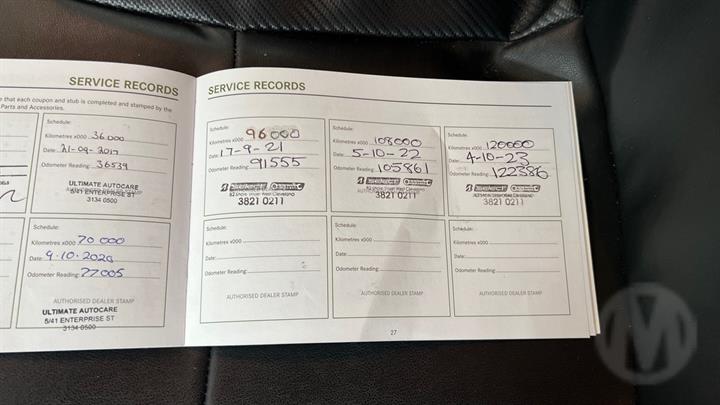 SERVICE RECORDS
e that each coupon and stub is completed and stamped by the
Parts and Accessories.
Schedule:
Kilometres x000 36000
Date: 21-09-2017
Odometer Reading: 36539
ULTIMATE AUTOCARE
5/41 ENTERPRISE ST
3134 0500
Schedule:
Kilometres x000 70 000
Date: 9.10.2020
Odometer Reading: 77005
AUTHORISED DEALER STAMP
ULTIMATE AUTOCARE
5/41 ENTERPRISE ST
3134 0500
SERVICE RECORDS
Schedule:
Kilometres x000 96000
Date: 17-9-21
Odometer Reading: 91555
3821 0211
Schedule:
Kilometres x000 108000
Date: 5-10-22
Odometer Reading: 105861
3821 0211
Schedule:
Kilometres x000 120000
Date: 4-10-23
Odometer Reading: 122386
3821 0211
Schedule:
Kilometres x000
Date:
Odometer Reading:
AUTHORISED DEALER STAMP
Schedule:
Kilometres x000
Date:
Odometer Reading:
AUTHORISED DEALER STAMP
Schedule:
Kilometres x000
Date:
Odometer Reading:
AUTHORISED DEALER STAMP
27
M